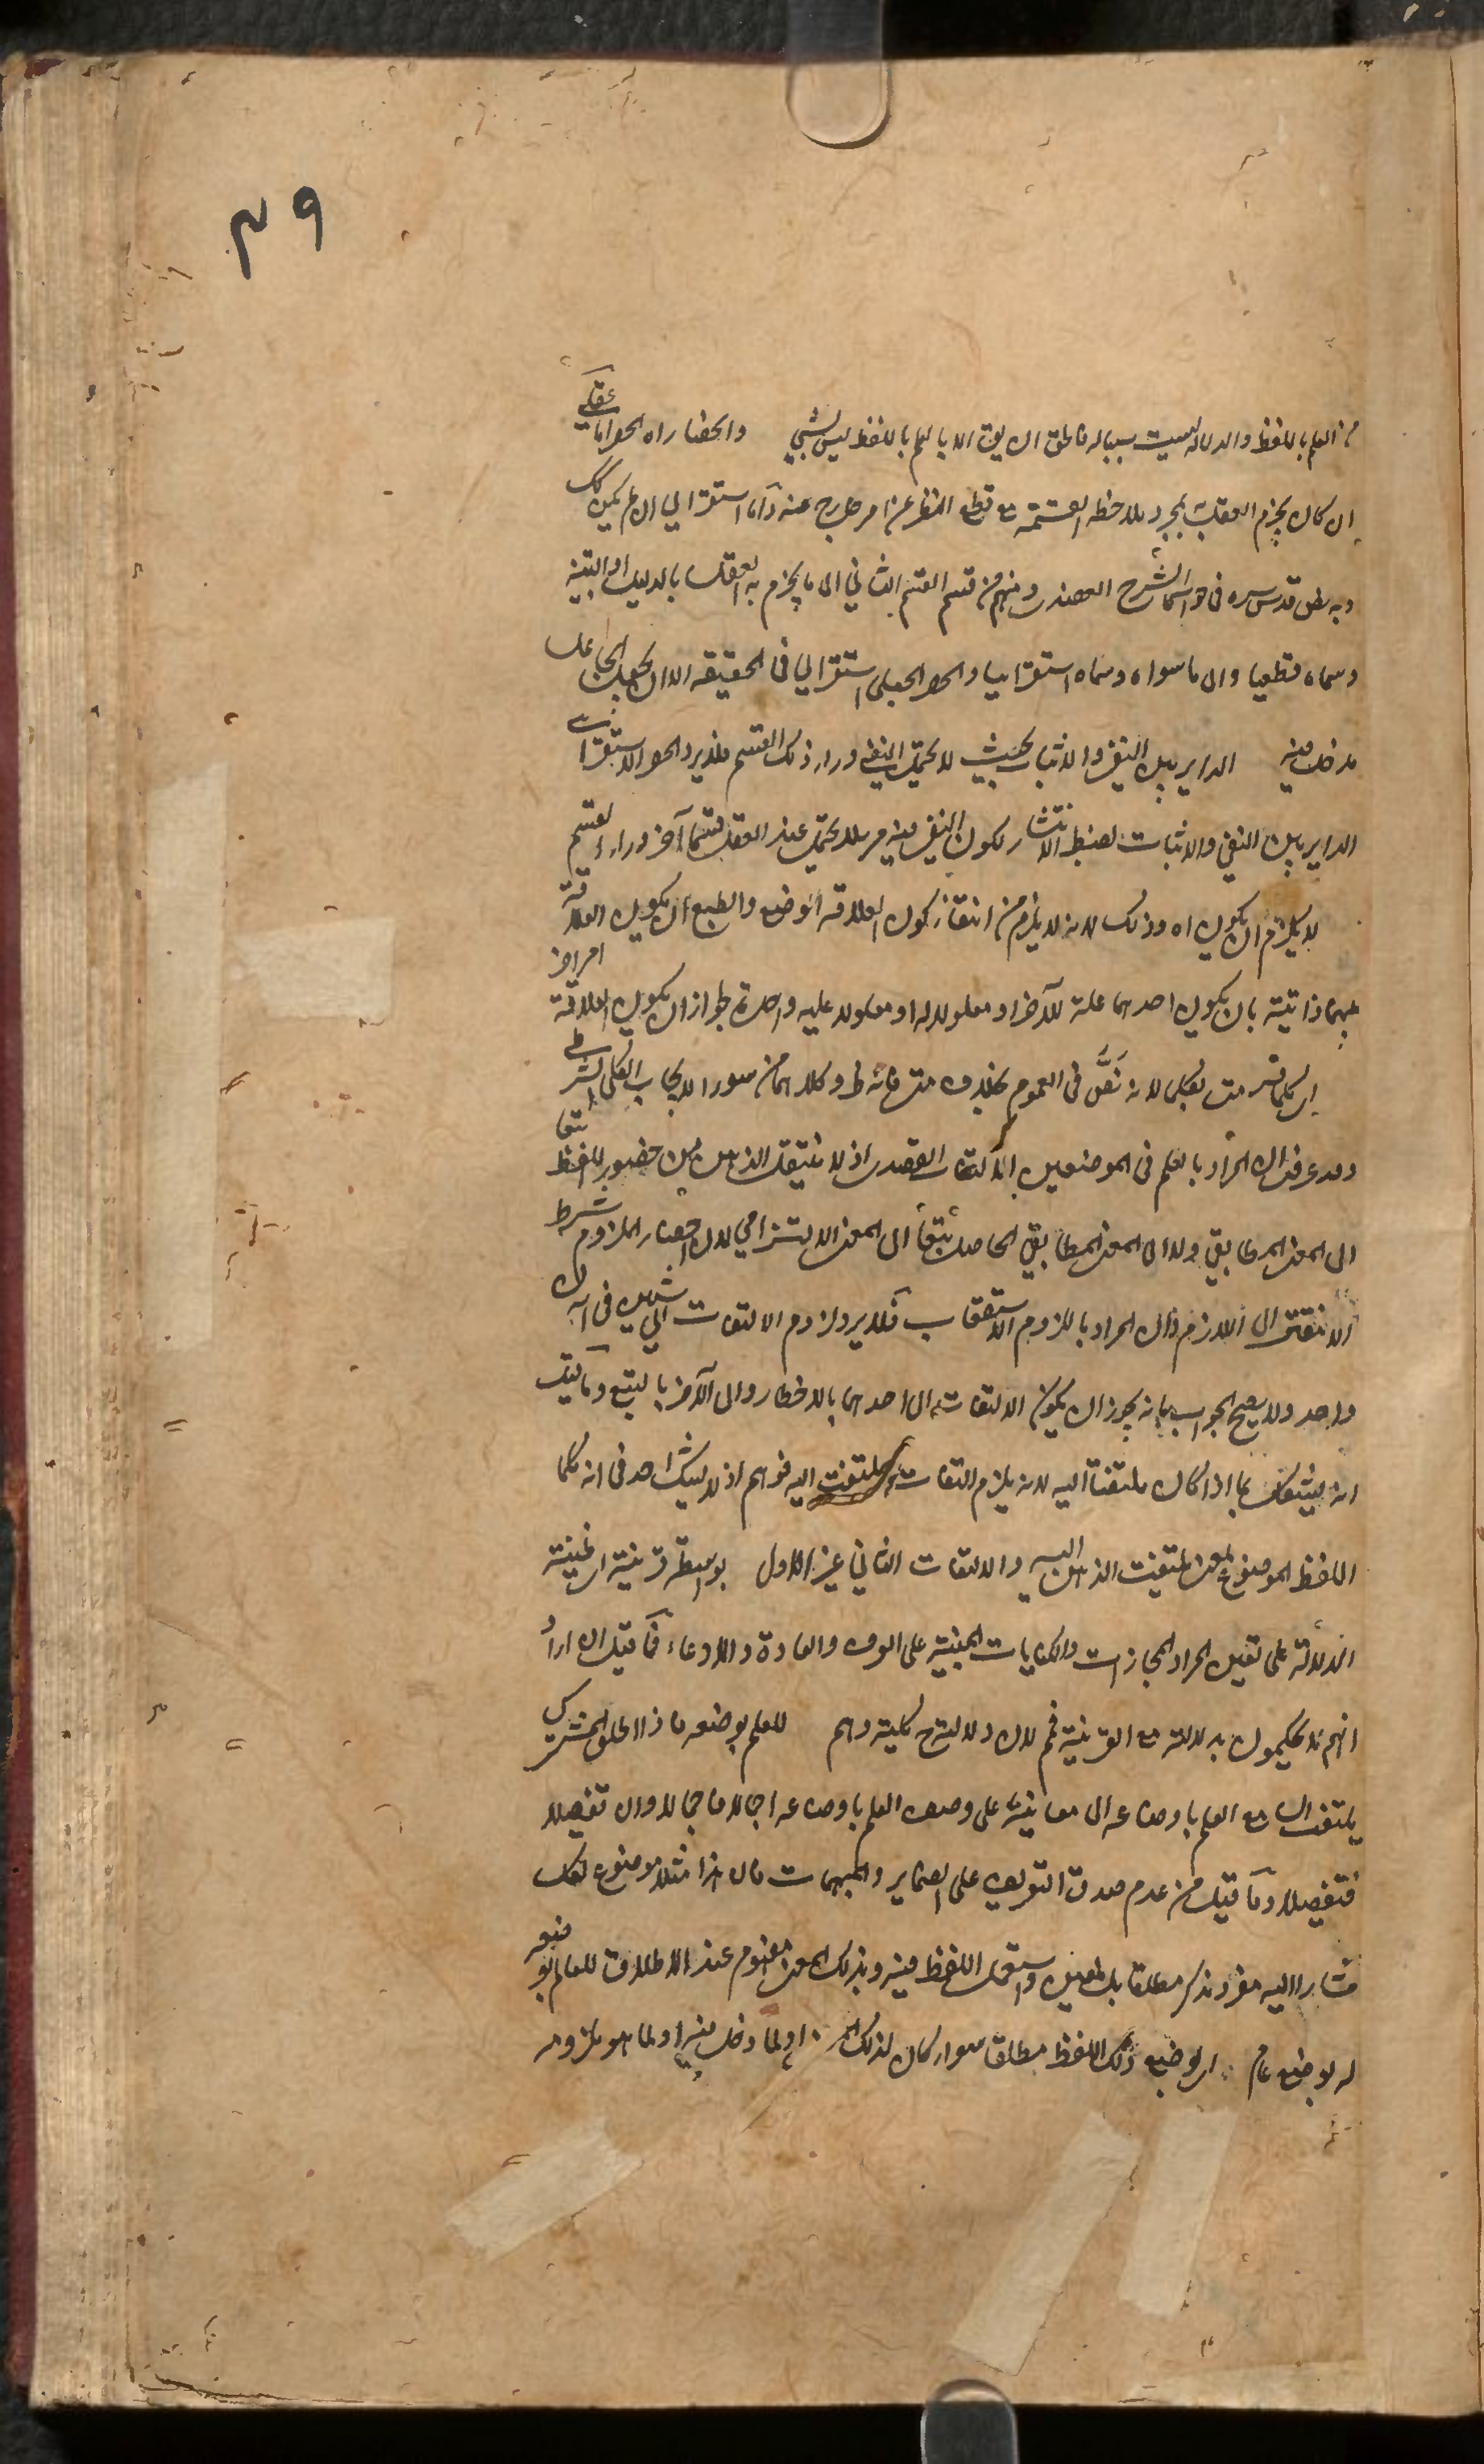 ٣٩
من العلم باللفظ والدلالة ليست سببا له فاطلق ان يق الا بالعلم باللفظ ليس بشيء والحصار اه الحصر اما عقلي
ان كان يجزم العقل بمجرد ملاحظة القسمة مع قطع النظر عن امر خارج عنه واما استقرائي ان لم يكن كك
وبه نطق قدس سره في حواشي الشرح العضدي ومنهم من قسم القسم الثاني الى ما يجزم به العقل بالدليل او التنبيه
وسماه قطعيا والى ما سواه وسماه استقرائيا والحصر الجعلي استقرائي في الحقيقة الا ان لجعل الجاعل
مدخلا فيه الداير بين النفي والاثبات بحيث لا يحتمل النفي وراء ذلك القسم فلا يرد الحصر الاستقرائي
الداير بين النفي والاثبات لضبط الانتشار لكون النفي فيه مرسلا يحتمل عند العقل قسما آخر وراء القسم
لا يلزم ان يكون اه وذلك لانه لا يلزم من انتفاء كون العلاقة الوضع والطبع ان يكون العلاقة
بينهما ذاتية بان يكون احدهما علة للآخر او معلولا له او معلولا علة واحدة لجواز ان يكون العلاقة امرا آخر
اي كلما فسر متى بكلما لانه نص في العموم بخلاف متى فانه ط وكلاهما من سور الايجاب الكلي الشرطي
وقد عرفت ان المراد بالعلم في الموضعين الالتفات القصدي اذ لا ينتقل الذهن من حضور اللفظ تبعا
الى المعنى المطابقي ولا الى المعنى المطابقي الحاصل تبعا الى المعنى الالتزامي لان احضار الملزوم شرط
الانتقال الى اللازم وان المراد باللزوم الاستعقاب فلا يرد لزوم الالتفات الى شيئين في آن
واحد ولا يصح الجواب بانه يجوز ان يكون الالتفات الى احدهما بالاخطار والى الآخر بالتبع وما قيل
انه يشكل بما اذا كان ملتفتا اليه لانه يلزم التفات الملتفت اليه فوهم اذ لا يشك احد في انه كلما
اللفظ الموضوع لمعنى يلتفت الذهن اليه والالتفات الثاني غير الاول بواسطة قرينة اي معينة
الدلالة على تعيين المراد المجازات والكنايات المبنية على العرف والعادة والادعاء فما قيل ان اراد
انهم لا يحكمون بدلالته مع القرينة فم لان دلالته ح كلية وهم للعلم بوضعه فاذا اطلق المشترك
يلتفت السامع العلم باوضاعه الى معانيه على وصف العلم باوضاعه اجمالا فاجمالا وان تفصيلا
فتفصيلا وما قيل من عدم صدق التعريف على الضماير والمبهمات فان هذا مثلا موضوع لكل
مشار اليه مفرد مذكر مطلقا بل لمعين واستعمل اللفظ فيه وبذلك المعنى مفهوم عند الاطلاق للعالم بوضعه
له بوضع عام اي بوضع ذلك اللفظ مطلقا سواء كان لذلك او لما دخل فيه او لما هو ملزومه